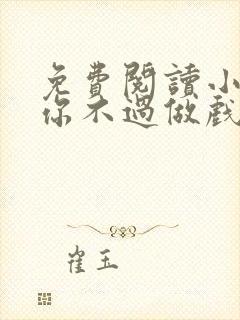 免費閱讀小
你不過做戲
崔玉